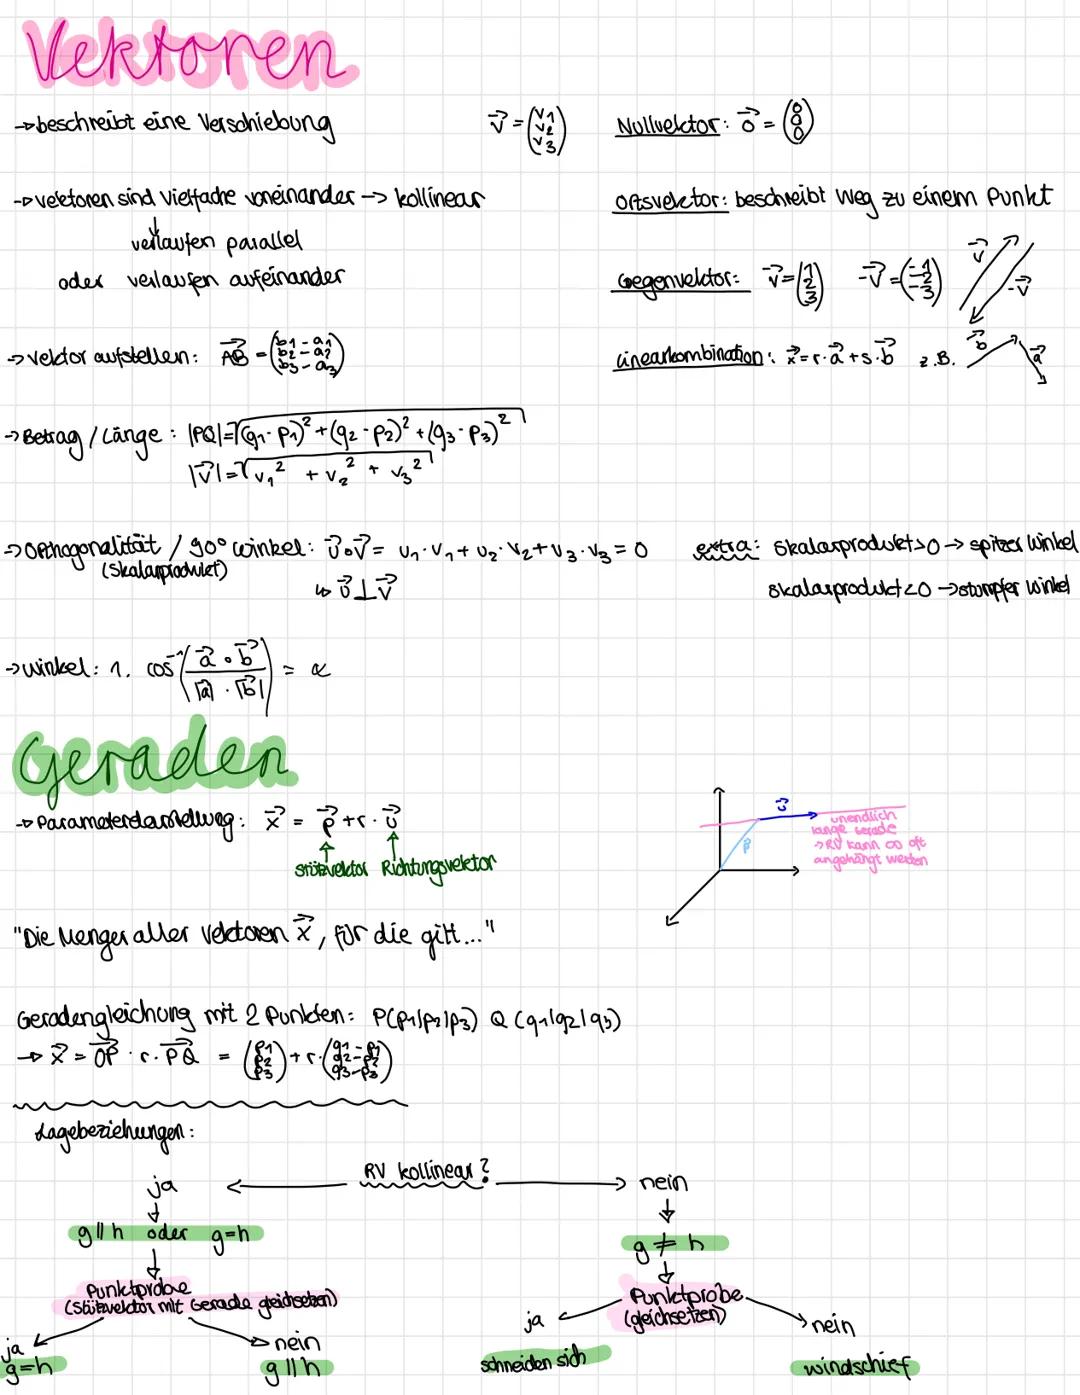 Vektoren
→ beschreibt eine Verschiebung
v⃗ = (v1 v2 v3)
Nullvektor: o⃗ = (0 0 0)
→ vektoren sind Vielfache voneinander → kollinear
Ortsvektor: beschreibt Weg zu einem Punkt
verlaufen parallel
oder verlaufen aufeinander
Gegenvektor: v⃗ = (1 2 3) -v⃗ = (-1 -2 -3)
v⃗
-v⃗
→ vektor aufstellen: AB⃗ = (b1 - a1 b2 - a2 b3 - a3)
Linearkombination: x⃗ = r · a⃗ + s · b⃗ z.B.
b⃗
a⃗
→ Betrag / Länge: |PQ| = √(q1 - p1)² + (q2 - p2)² + (q3 - p3)²
|v⃗| = √v1² + v2² + v3²
→ Orthogonalität / 90° winkel: u⃗ ∘ v⃗ = u1 · v1 + u2 · v2 + u3 · v3 = 0
(Skalarprodukt)
↳ u⃗ ⊥ v⃗
extra: Skalarprodukt > 0 → spitzer Winkel
Skalarprodukt < 0 → stumpfer Winkel
→ winkel: 1. cos⁻¹ (a⃗ ∘ b⃗ / |a⃗| · |b⃗|) = α
Geraden
→ Parameterdarstellung: x⃗ = p⃗ + r · u⃗
Stützvektor Richtungsvektor
u⃗
p⃗
unendlich
lange Gerade
→ RV kann ∞ oft
angehängt werden
"Die Menge aller vektoren x⃗, für die gilt..."
Geradengleichung mit 2 Punkten: P(p1|p2|p3) Q (q1|q2|q3)
→ x⃗ = OP⃗ · r · PQ⃗ = (p1 p2 p3) + r · (q1 - p1 q2 - p2 q3 - p3)
Lagebeziehungen:
RV kollinear?
ja
nein
g ∥ h oder g = h
g ≠ h
Punktprobe
(Stützvektor mit Gerade gleichsetzen)
Punktprobe
(gleichsetzen)
ja
g = h
nein
g ∥ h
ja
schneiden sich
nein
windschief